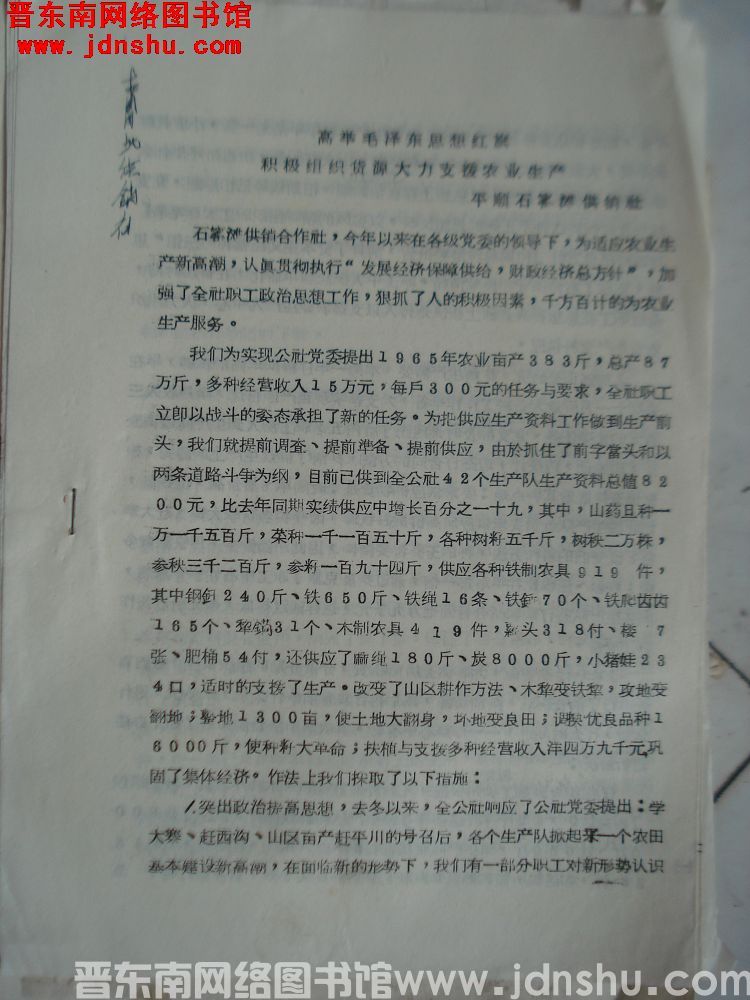 晋东南网络图书馆
www.jdnshu.com
供销社
高举毛泽东思想红旗
积极组织货源大力支援农业生产
平顺石窰滩供销社
石窰滩供销合作社，今年以来在各级党委的领导下，为适应农业生
产新高潮，认真贯彻执行“发展经济保障供给，财政经济总方针”，加
强了全社职工政治思想工作，狠抓了人的积极因素，千方百计的为农业
生产服务。
我们为实现公社党委提出1965年农业亩产383斤，总产87
万斤，多种经营收入15万元，每戶300元的任务与要求，全社职工
立卽以战斗的姿态承担了新的任务。为把供应生产资料工作做到生产前
头，我们就提前调查、提前準备、提前供应，由於抓住了前字當头和以
两条道路斗争为纲，目前已供到全公社42个生产队生产资料总值82
00元，比去年同期实绩供应中增长百分之一十九，其中，山药旦种一
万一千五百斤，菜种一千一百五十斤，各种树籽五千斤，树秧二万株，
参秧三千二百斤，参籽一百九十四斤，供应各种铁制农具919 件，
其中钢鈤240斤、铁650斤、铁绳16条、铁 70个、铁爬齿齿
165个、犂 31个、木制农具419件， 头318付、楼 7
张、肥桶54付，还供应了麻绳180斤、炭8000斤，小猪娃23
4口，适时的支援了生产。改变了山区耕作方法、木犂变铁犂，攻地变
翻地； 地1300亩，使土地大翻身，坏地变良田；调换优良品种1
6000斤，使种籽大革命；扶植与支援多种经营收入洋四万九千元，巩
固了集体经济。作法上我们採取了以下措施：
1.突出政治提高思想，去冬以来，全公社响应了公社党委提出：学
大寨、赶西沟、山区亩产赶平川的号召后，各个生产队掀起了一个农田
基本建设新高潮，在面临新的形势下，我们有一部分职工对新形势认识
晋东南网络图书馆www.jdnshu.com